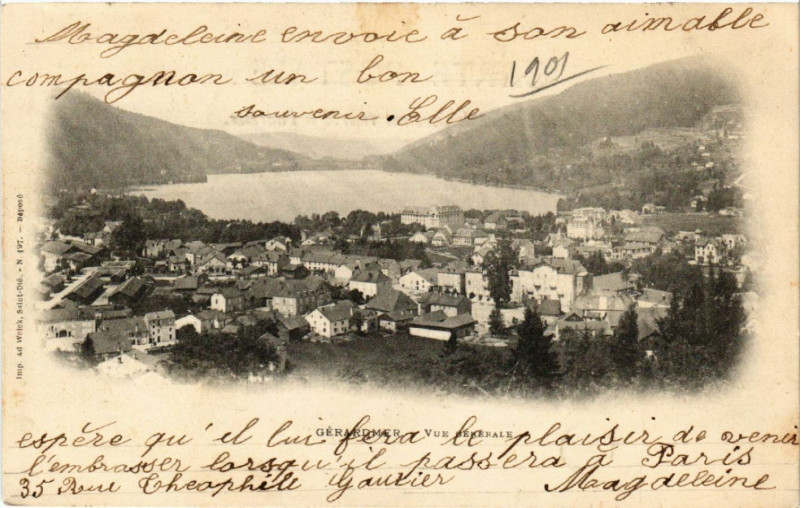 Magdeleine envoie à son aimable
compagnon un bon
souvenir. Elle
1901
Imp. Ad Weick, Saint-Dié. - N. 197. — Déposé
GÉRARDMER - VUE GÉNÉRALE
espère qu'il lui fera le plaisir de venir
l'embrasser lorsqu'il passera à Paris
35 Rue Theophile Gautier Magdeleine